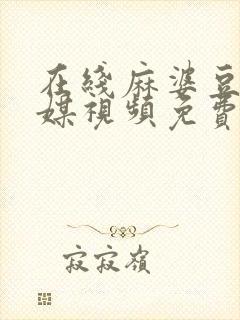 在綫麻婆豆
媒視頻免費
寂寂嶺